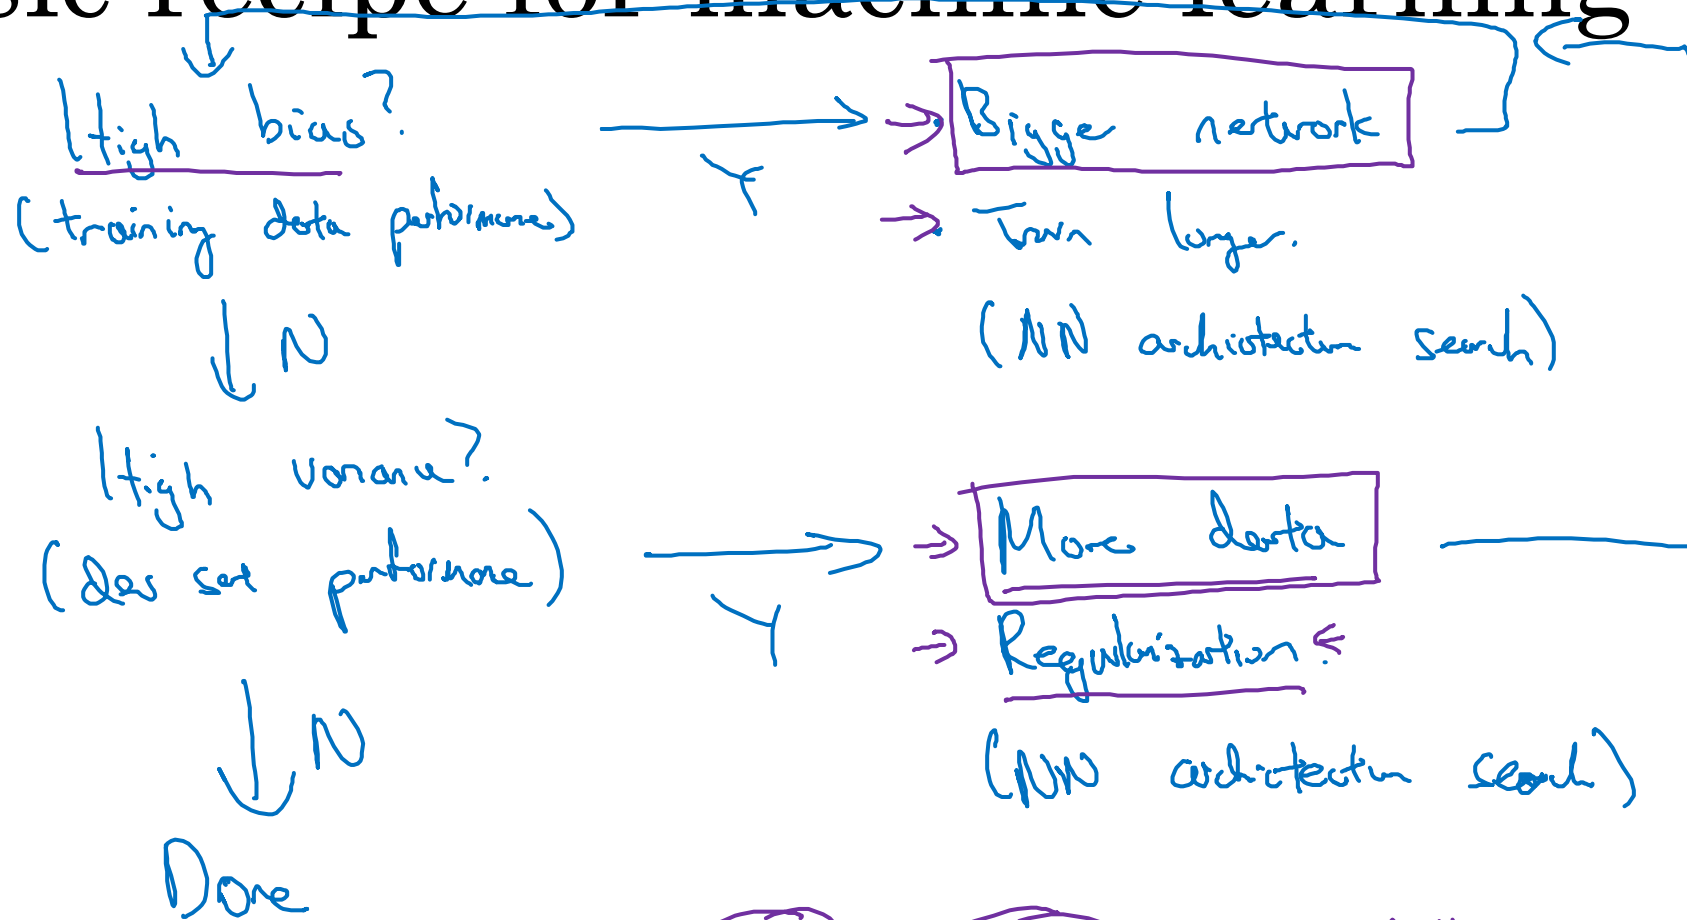 sic recipe for machine learning
High bias?
(training data performance)
Y
Bigger network
Train longer.
(NN architecture search)
N
High variance?
(dev set performance)
Y
More data
Regularization.
(NN architecture search)
N
Done